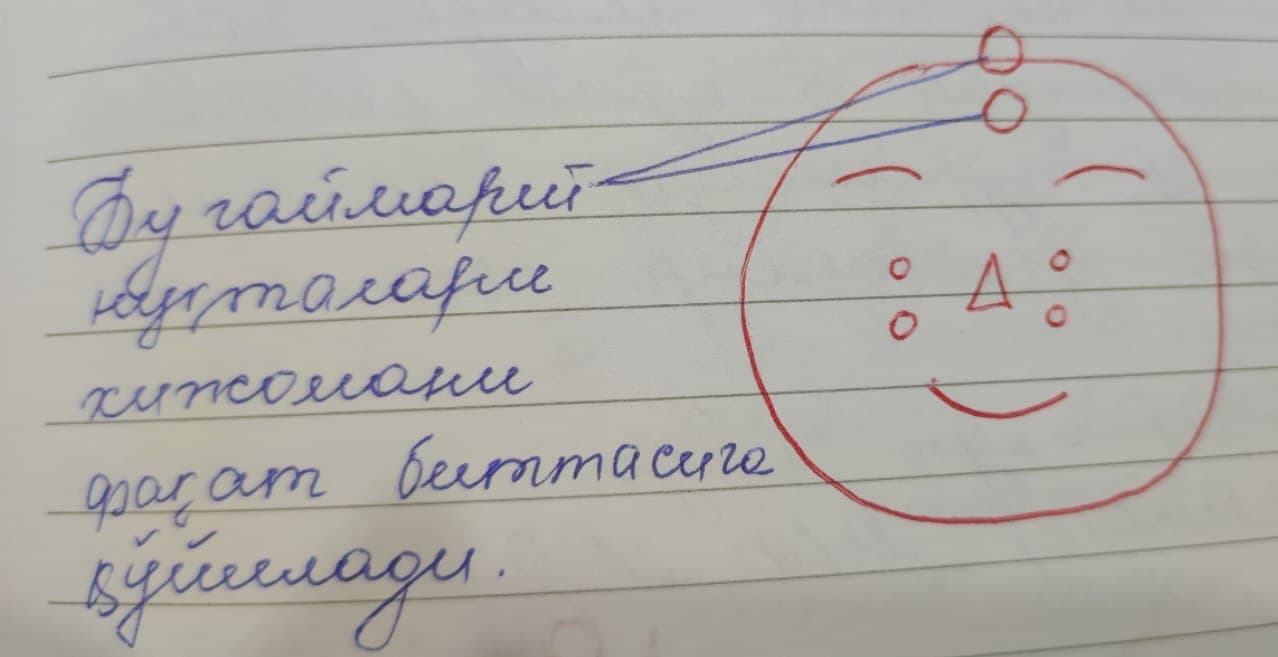 Бу гаймарий
нуқталари
хижомани
фақат биттасига
қўйилади.